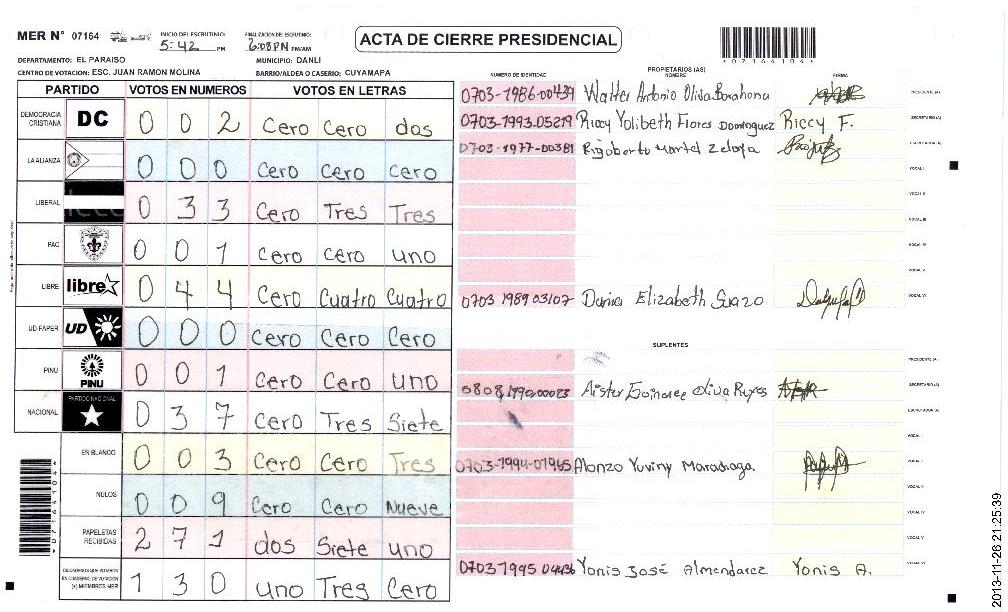 MER N° 07164
INICIO DEL ESCRUTINIO: 5:42 PM
FINALIZACION DEL ESCRUTINIO: 6:08 PM PM/AM
ACTA DE CIERRE PRESIDENCIAL
*07164104*
DEPARTAMENTO: EL PARAISO
MUNICIPIO: DANLI
CENTRO DE VOTACION: ESC. JUAN RAMON MOLINA
BARRIO/ALDEA O CASERIO: CUYAMAPA
PARTIDO VOTOS EN NUMEROS VOTOS EN LETRAS
DEMOCRACIA CRISTIANA DC 0 0 2 Cero Cero dos
LA ALIANZA 0 0 0 Cero Cero Cero
LIBERAL 0 3 3 Cero Tres Tres
PAC 0 0 1 Cero Cero uno
LIBRE libre 0 4 4 Cero Cuatro Cuatro
UD FAPER UD 0 0 0 Cero Cero Cero
PINU PINU 0 0 1 Cero Cero uno
NACIONAL PARTIDO NACIONAL 0 3 7 Cero Tres Siete
EN BLANCO 0 0 3 Cero Cero Tres
NULOS 0 0 9 Cero Cero Nueve
PAPELETAS RECIBIDAS 2 7 1 dos Siete uno
CIUDADANOS QUE VOTARON EN CUADERNO DE VOTACION (+) MIEMBROS MER 1 3 0 uno Tres Cero
PROPIETARIOS (AS)
NUMERO DE IDENTIDAD NOMBRE FIRMA
0703-1986-00439 Walter Antonio Oliva Barahona PRESIDENTE (A)
0703-1993-05219 Riccy Yolibeth Flores Dominguez Riccy F. SECRETARIO (A)
0703-1977-00381 Rigoberto Martel Zelaya ESCRUTADOR (A)
VOCAL I
VOCAL II
VOCAL III
VOCAL IV
VOCAL V
0703 1989 03107 Elizabeth Suazo VOCAL VI
SUPLENTES
PRESIDENTE (A)
0808 1990 00023 Oliva Reyes SECRETARIO (A)
ESCRUTADOR (A)
VOCAL I
0703-1994-01965 Alonzo Yuviny Maradiaga VOCAL II
VOCAL III
VOCAL IV
VOCAL V
0703 1995 04436 Yonis José Almendarez Yonis A. VOCAL VI
2013-11-26 21:25:39